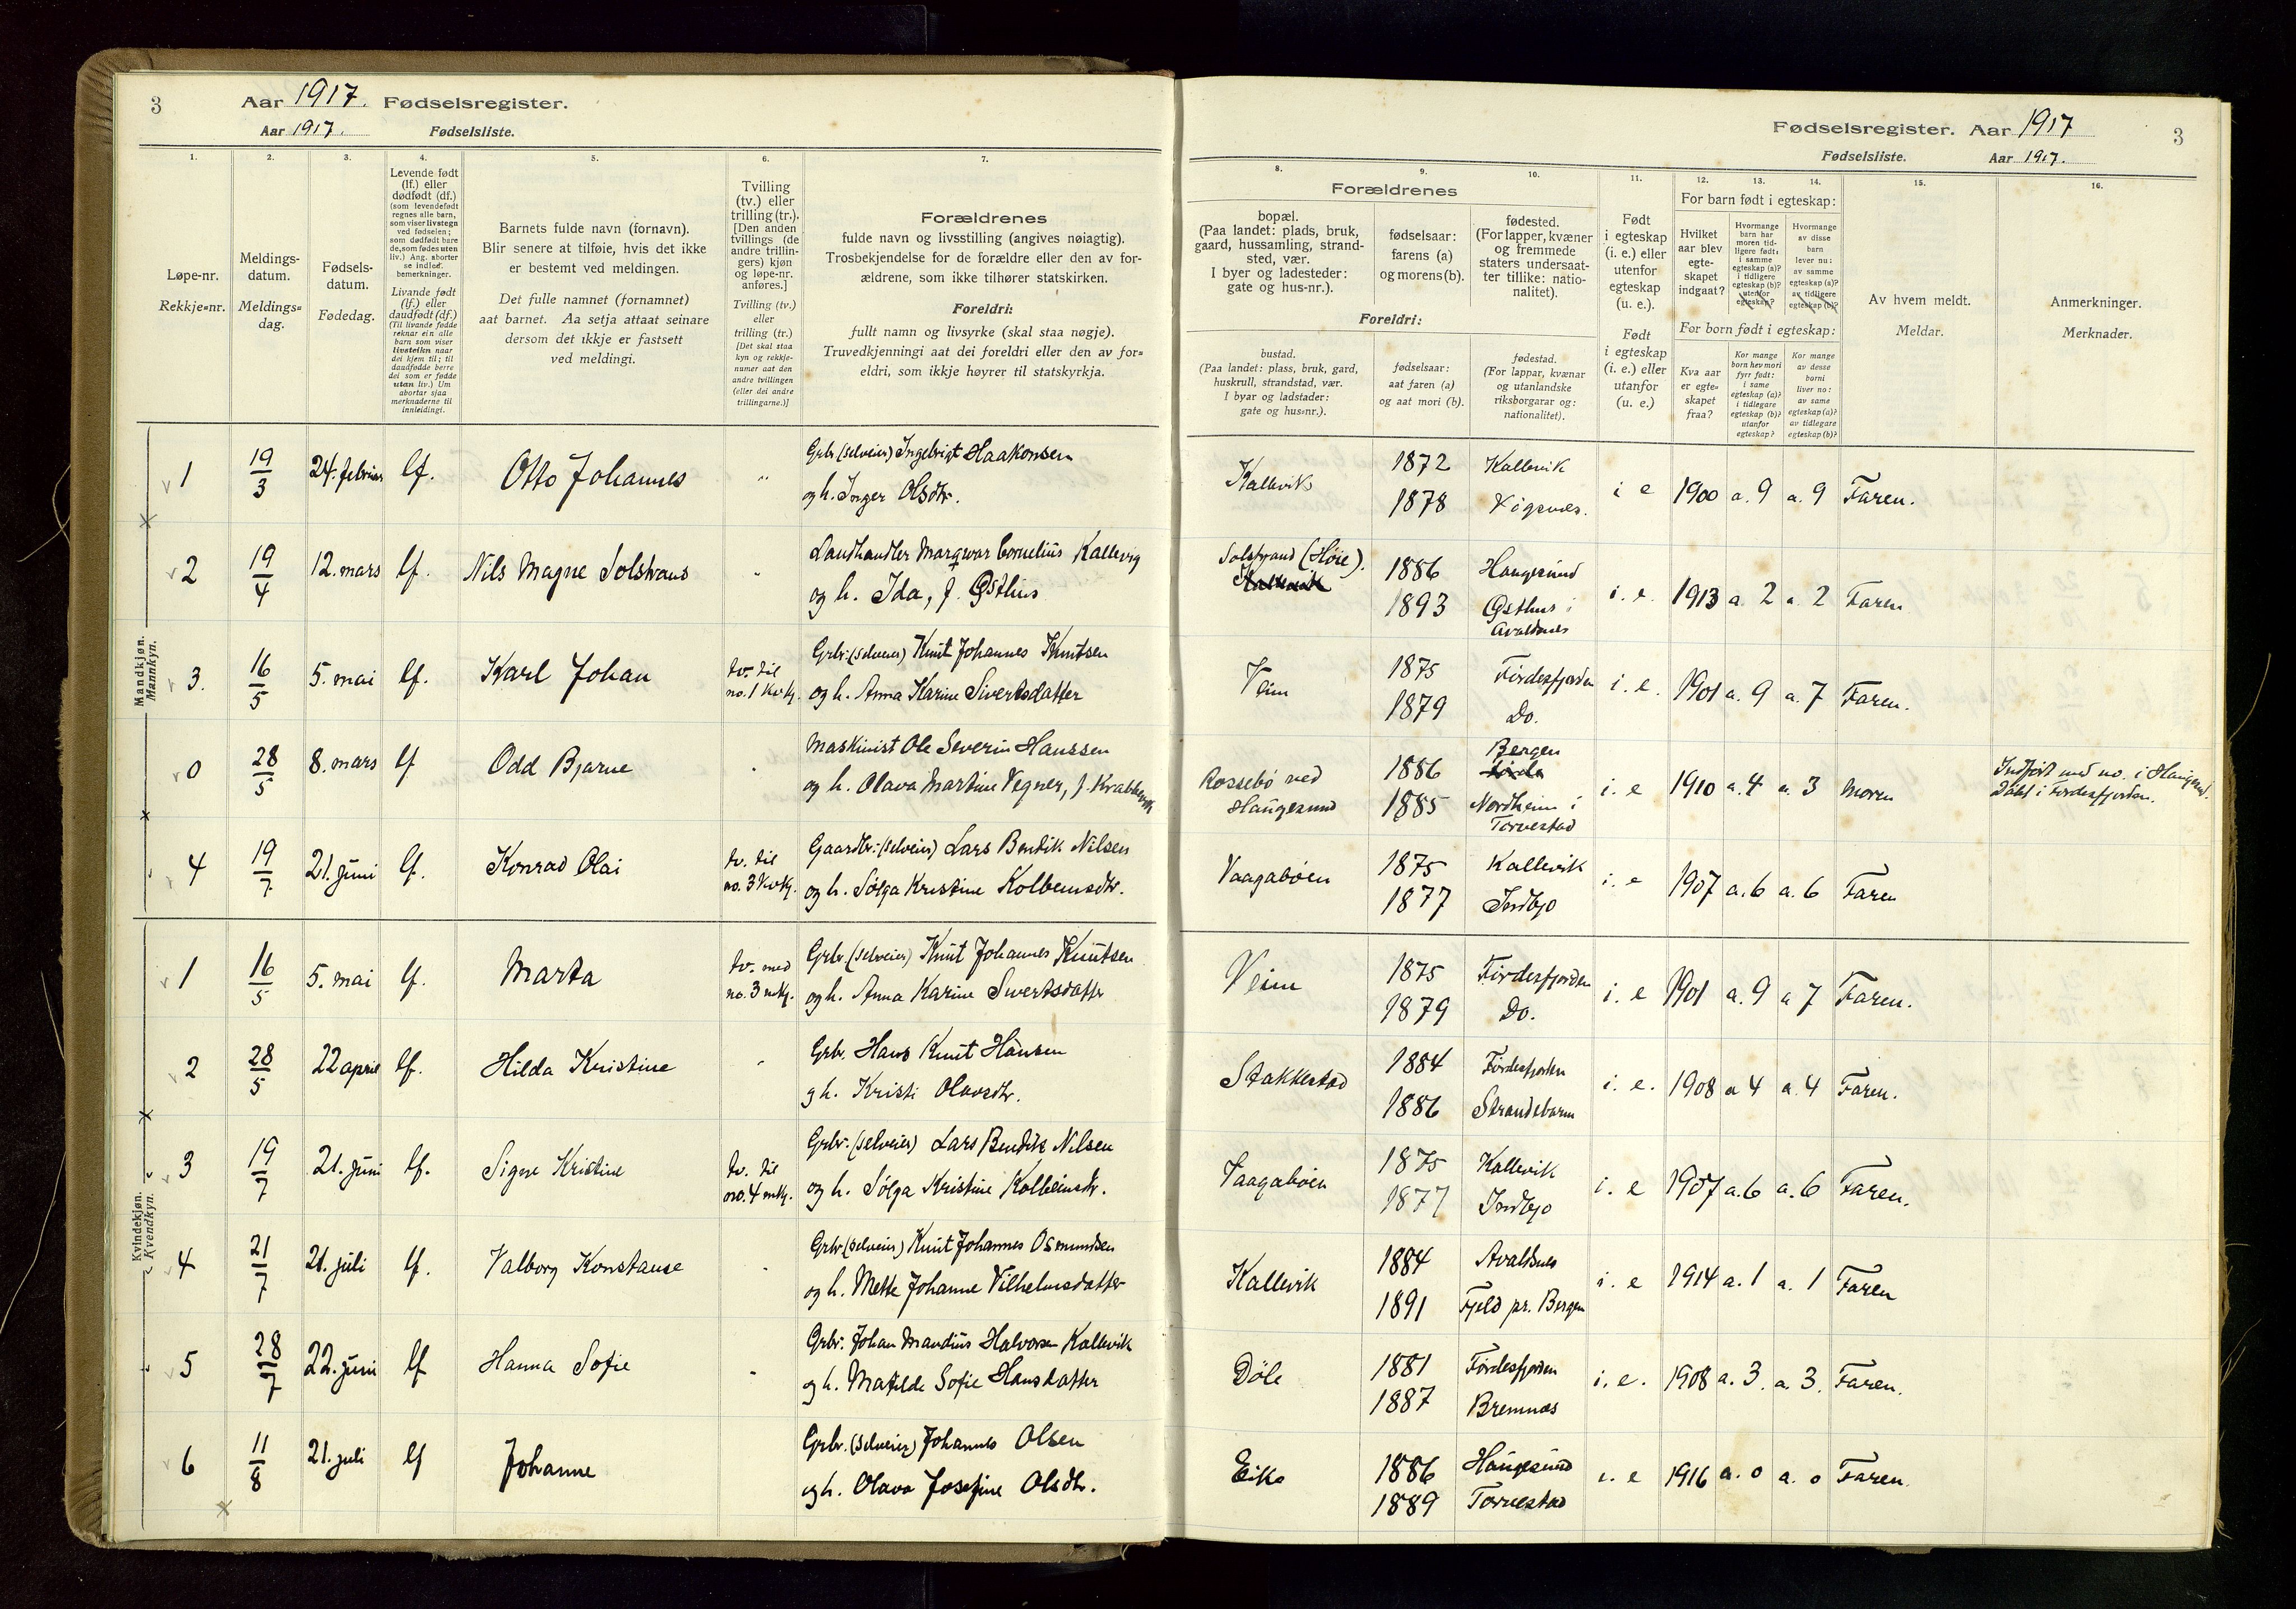 3
Aar 1917. Fødselsregister.
Aar 1917. Fødselsliste.
Fødselsregister. Aar 1917
3
Fødselsliste. Aar 1917.
1.
Løpe-nr.
Rekkje-nr.
2.
Meldings-
datum.
Meldings-
dag.
3.
Fødsels-
datum.
Fødedag.
4.
Levende født
(lf.) eller
dødfødt (df.)
(som levendefødt
regnes alle barn,
som viser livstegn
ved fødselen;
som dødfødt bare
de, som fødes uten
liv.) Ang. aborter
se indled.
bemerkninger.
Livande født
(lf.) eller
daudfødt (df.)
(Til livande fødde
reknar ein alle
barn som viser
livsteikn naar
dei kjem til; til
daudfødde berre
dei som er fødde
utan liv.) Um
abortar sjaa
merknaderne til
innleidingi.
5.
Barnets fulde navn (fornavn).
Blir senere at tilføie, hvis det ikke
er bestemt ved meldingen.
Det fulle namnet (fornamnet)
aat barnet. Aa setja attaat seinare
dersom det ikkje er fastsett
ved meldingi.
6.
Tvilling
(tv.) eller
trilling (tr.).
[Den anden
tvillings (de
andre trillin-
gers) kjøn
og løpe-nr.
anføres.]
Tvilling (tv.)
eller
trilling (tr.)
[Det skal staa
kyn og rekkje-
numer aat den
andre tvillingen
(eller dei andre
trillingarne.)]
7.
Forældrenes
fulde navn og livsstilling (angives nøiagtig).
Trosbekjendelse for de forældre eller den av for-
ældrene, som ikke tilhører statskirken.
Foreldri:
fullt namn og livsyrke (skal staa nøgje).
Truvedkjenningi aat dei foreldri eller den av for-
eldri, som ikkje høyrer til statskyrkja.
8.
Forældrenes
bopæl.
(Paa landet: plads, bruk,
gaard, hussamling, strand-
sted, vær.
I byer og ladesteder:
gate og hus-nr.).
Foreldri:
bustad.
(Paa landet: plass, bruk, gard,
huskrull, strandstad, vær.
I byar og ladstader:
gate og hus-nr.).
9.
fødselsaar:
farens (a)
og morens (b).
fødselsaar:
aat faren (a)
og aat mori (b).
10.
fødested.
(For lapper, kvæner
og fremmede
staters undersaat-
ter tillike: natio-
nalitet).
fødestad.
(For lappar, kvænar
og utanlandske
riksborgarar og:
nationalitet).
11.
Født
i egteskap
(i. e.) eller
utenfor
egteskap
(u. e.).
Født
i egteskap
(i. e.) eller
utanfor
(u. e.)
For barn født i egteskap:
12.
Hvilket
aar blev
egte-
skapet
indgaat?
13.
Hvormange
barn har
moren tid-
ligere født:
i samme
egteskap (a)?
i tidligere
egteskap (b)?
utenfor
egteskap?
14.
Hvormange
av disse
barn
lever nu:
av samme
egteskap (a)?
av tidligere
egteskap (b)?
For born født i egteskap:
Kva aar
er egte-
skapet
fraa?
Kor mange
born hev mori
fyrr født:
i same
egteskap (a)?
i tidlegare
egteskap (b)?
utanfor
egteskap?
Kor mange
av desse
borni
liver no:
av same
egteskap (a)?
av tidlegare
egteskap (b)?
15.
Av hvem meldt.
Meldar.
16.
Anmerkninger.
Merknader.
Mandkjøn.
Mannkyn.
1 19/3 24. februar lf. Otto Johannes " Grbr. (selveier) Ingebrigt Haakonsen
og h. Inger Olsdtr.
Kallevik 1872 Kallevik i e 1900 a. 9 a. 9 Faren.
1878
2 19/4 12. mars lf. Nils Magne Solstrans " Landhandler Marqwar Cornelius Kallevig
og h. Ida, f. Østhus
Solstrand (Høie). 1886 Haugesund i. e. 1913 a. 2 a. 2 Faren
1893 Østhus i
Avaldsnes
3. 16/5 5. mai lf. Karl Johan tv. til
no. 1 kvkj. Grbr. (selveier) Knut Johannes Knutsen
og h. Anna Karine Sivertsdatter
Veim 1875 Førdesfjorden i. e. 1901 a. 9 a. 7 Faren.
1879 Do.
0 28/5 8. mars lf Odd Bjarne " Maskinist Ole Severin Hanssen
og h. Olava Martine Vegner, f.
Rossebø ved
Haugesund 1886 Bergen i. e 1910 a. 4 a. 3 Moren
1885 Nordheim i
Torvestad
Indført med no. i Haugesund.
Døbt i Førdesfjorden.
4 19/7 21. juni lf. Konrad Olai tv. til
no. 3 kvkj. Gaardbr. (selveier) Lars Bendik Nilsen
og h. Sølga Kristine Kolbeinsdtr.
Vaagabøen 1875 Kallevik i. e 1907 a. 6 a. 6 Faren
1877 Indbjo
Kvindekjøn.
Kvendkyn.
1 16/5 5. mai lf. Marta tv. med
no. 3 mkj. Grbr. (selveier) Knut Johannes Knutsen
og h. Anna Karine Sivertsdatter
Veim 1875 Førdesfjorden i. e 1901 a. 9 a 7 Faren.
1879 Do.
2 28/5 22 april lf. Hilda Kristine " Grbr. Hans Knut Hansen
og h. Kristi Olavsdtr.
Stakkestad 1884 Førdesfjorden i. e. 1908 a 4 a. 4 Faren.
1886 Strandebarm
3 19/7 21. juni lf. Signe Kristine tv. til
no. 4 mkj. Grbr. (selveier) Lars Bendik Nilsen
og h. Sølga Kristine Kolbeinsdtr.
Vaagabøen 1875 Kallevik i. e 1907 a. 6 a. 6 Faren.
1877 Indbjo
4 21/7 21. juli lf. Valborg Konstanse " Grbr. (selveier) Knut Johannes Osmundsen
og h. Mette Johanne Vilhelmsdatter
Kallevik 1884 Avaldsnes i. e 1914 a. 1 a. 1 Faren
1891 Fjeld pr. Bergen
5 28/7 22. juni lf Hanna Sofie " Grbr. Johan Mandius Halvorsen Kallevik
og h. Matilde Sofie Hansdatter
Døle 1881 Førdesfjorden i. e. 1908 a. 3. a. 3. Faren.
1887 Bremnes
6 11/8 21. juli lf Johanne Grbr. (selveier) Johannes Olsen
og h. Olava Josefine Olsdtr.
Eike 1886 Haugesund i. e 1916 a. 0 a. 0 Faren.
1889 Torvestad